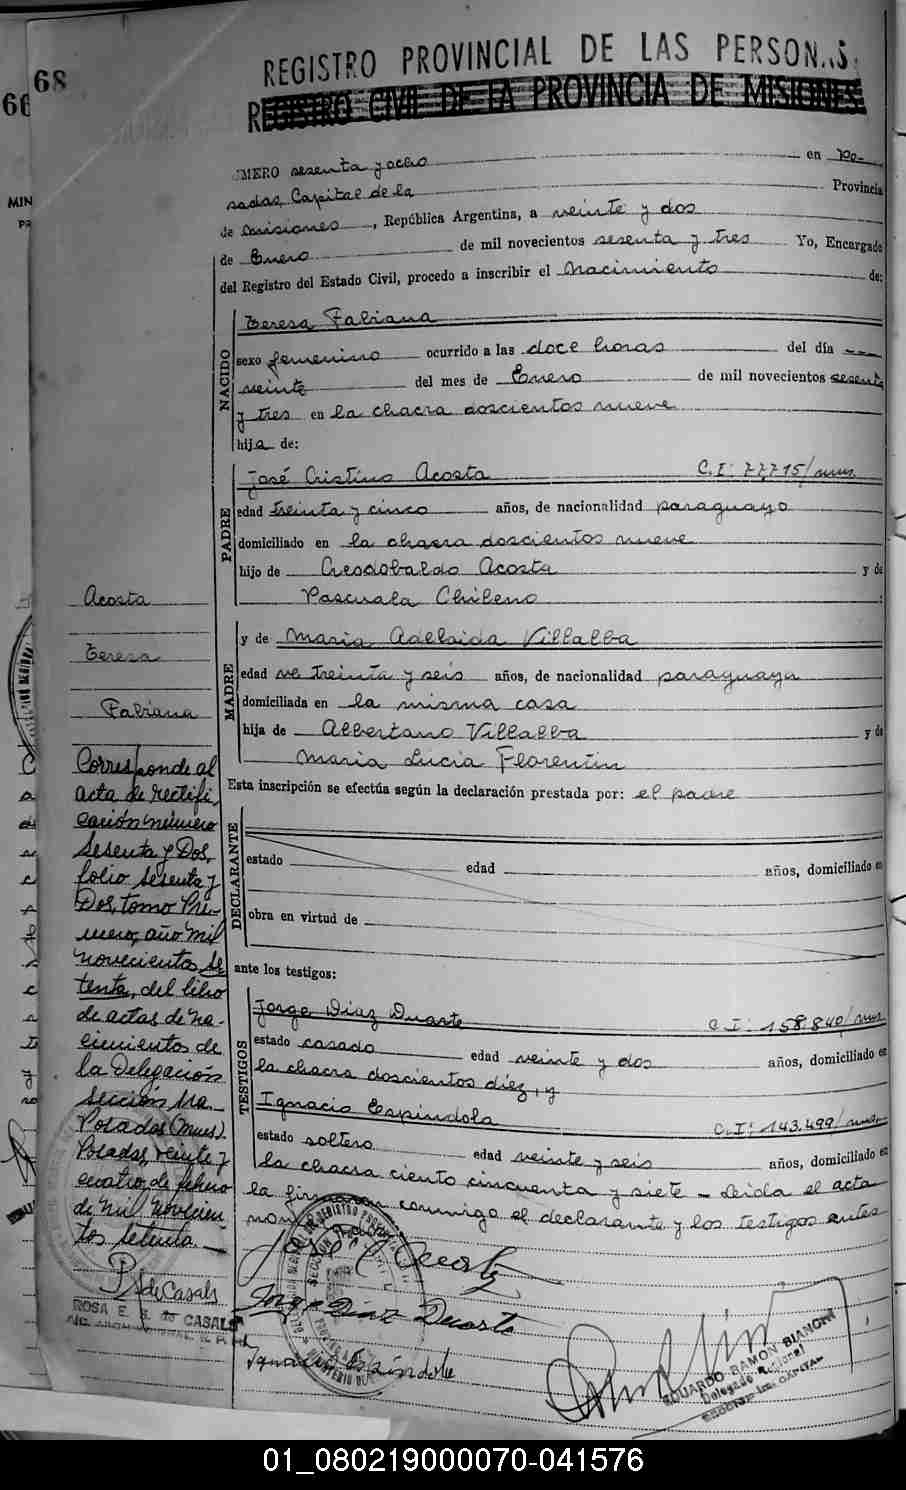 68
66
REGISTRO PROVINCIAL DE LAS PERSON..S.
REGISTRO CIVIL DE LA PROVINCIA DE MISIONES
MIN
PR
.MERO sesenta y ocho en Po-
sadas Capital de la Provincia
de Misiones, República Argentina, a veinte y dos
de Enero de mil novecientos sesenta y tres Yo, Encargado
del Registro del Estado Civil, procedo a inscribir el Nacimiento de:
NACIDO
Teresa Fabiana
sexo femenino ocurrido a las doce horas del día ---
veinte del mes de Enero de mil novecientos sesenta
y tres en la chacra doscientos nueve
hija de:
PADRE
José Cristino Acosta C.I: 77,715/mnes.
edad treinta y cinco años, de nacionalidad paraguayo
domiciliado en la chacra doscientos nueve
hijo de Creodobaldo Acosta y de
Pascuala Chileno :
MADRE
y de Maria Adelaida Villalba
edad ve treinta y seis años, de nacionalidad paraguaya
domiciliada en la misma casa
hija de Albertano Villalba y de
Maria Lucia Florentin
Esta inscripción se efectúa según la declaración prestada por: el padre
DECLARANTE
estado edad años, domiciliado en
obra en virtud de
ante los testigos:
TESTIGOS
Jorge Diaz Duarte C.I: 158.840/mnes.
estado casado edad veinte y dos años, domiciliado en
la chacra doscientos diez, y
Ignacio Espindola C.I: 143.499/mnes.
estado soltero edad veinte y seis años, domiciliado en
la chacra ciento cincuenta y siete - Leida el acta
la firmaron conmigo el declarante y los testigos antes
Jorge Diaz Duarte
Ignacio Espíndola
EDUARDO RAMON BIANCHI
Delegado Regional
Acosta
Teresa
Fabiana
Corresponde al
acta de rectifi
cación número
Sesenta y Dos,
folio Sesenta y
Dos, tomo Pri-
mero, año mil
novecientos Se
tenta, del libro
de actas de na-
cimientos de
la Delegación
Sección 1ra.
Posadas (Mnes).
Posadas, veinte y
cuatro de febrero
de mil novecien
tos setenta.
RSdeCasals
ROSA E. S. de CASALS
01_080219000070-041576